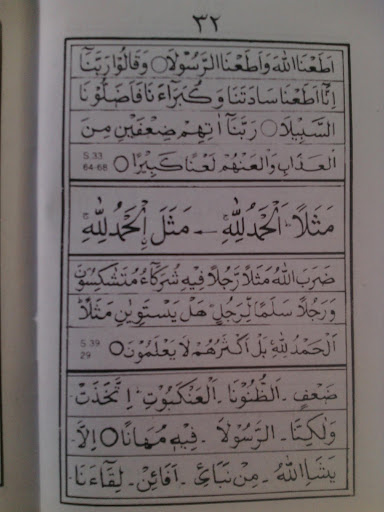 ٣٢
اَطَعْنَا اللّٰهَ وَاَطَعْنَا الرَّسُوْلَا ○ وَقَالُوْا رَبَّنَآ
اِنَّآ اَطَعْنَا سَادَتَنَا وَكُبَرَآءَنَا فَاَضَلُّوْنَا
السَّبِيْلَا ○ رَبَّنَآ اٰتِهِمْ ضِعْفَيْنِ مِنَ
الْعَذَابِ وَالْعَنْهُمْ لَعْنًا كَبِيْرًا ○ S.33 64-68
مَثَلًا ۔ اَلْحَمْدُ لِلّٰهِ ۔ مَثَلَ اِلْحَمْدُ لِلّٰهِ
ضَرَبَ اللّٰهُ مَثَلًا رَّجُلًا فِيْهِ شُرَكَآءُ مُتَشٰكِسُوْنَ
وَرَجُلًا سَلَمًا لِّرَجُلٍ ؕ هَلْ يَسْتَوِيٰنِ مَثَلًا ؕ
اَلْحَمْدُ لِلّٰهِ ۚ بَلْ اَكْثَرُهُمْ لَا يَعْلَمُوْنَ ○ S.39 29
ضَعْفٍ ۔ الظُّنُوْنَا ۔ الْعَنْكَبُوْتِ ۚ اِتَّخَذَتْ
وَلٰكِنَّا ۔ الرَّسُوْلَا ۔ فِيْهٖ مُهَانًا ○ اِلَّا
يَشَاِ اللّٰهُ ۔ مِنْ نَّبَاِئ ۔ اَفَائِنْ ۔ لِقَآءَنَا